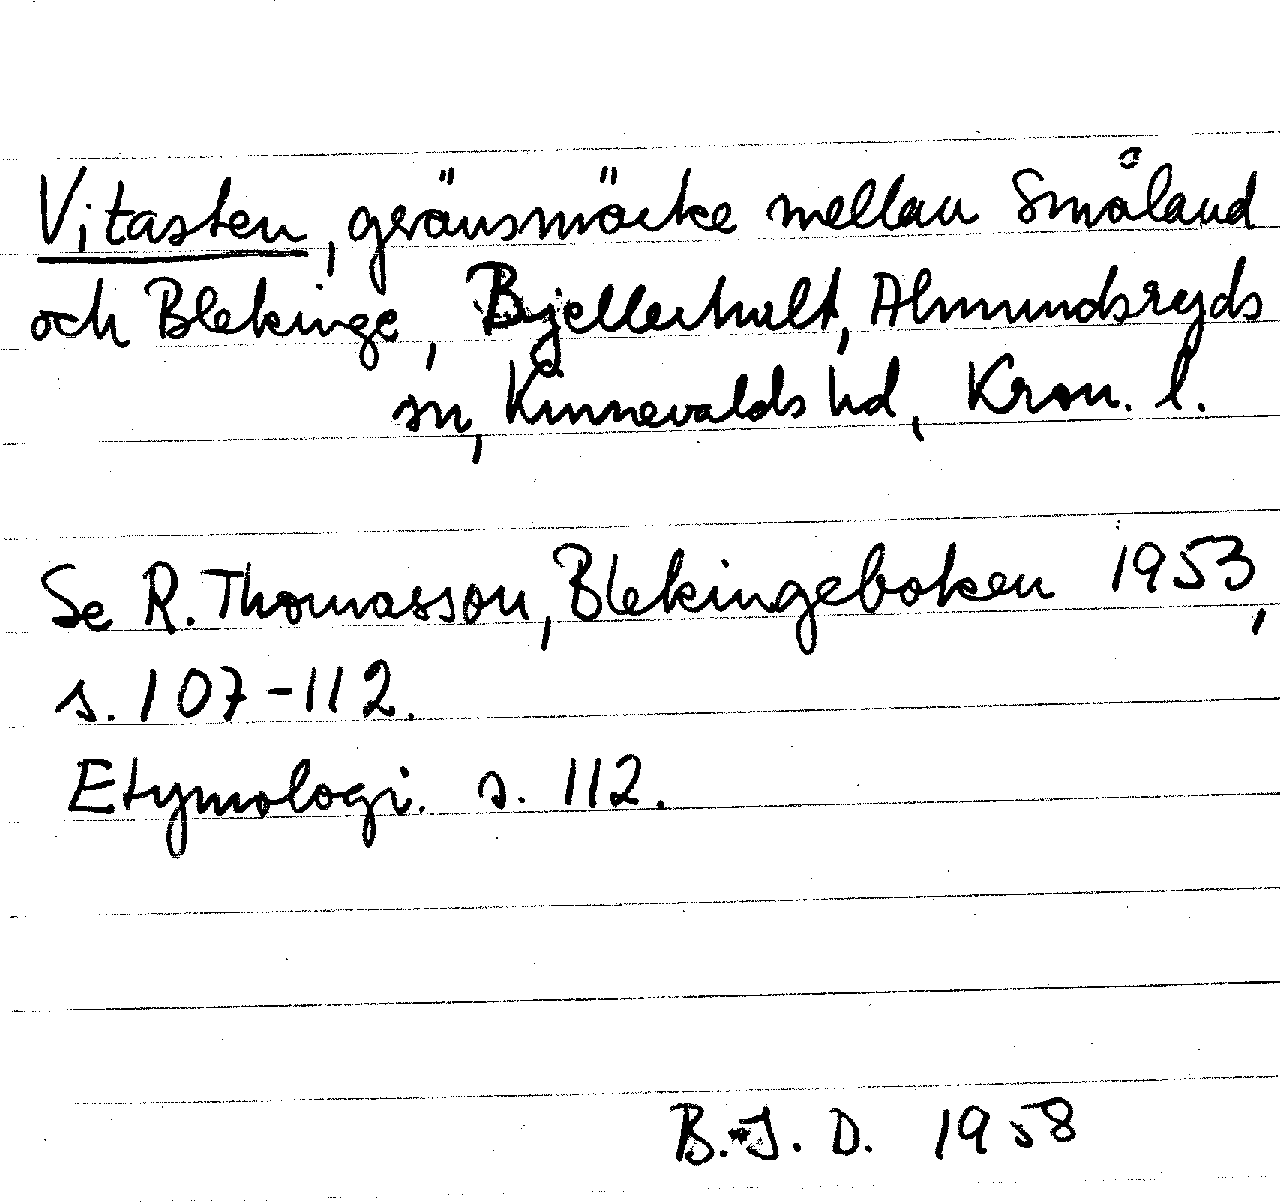 Vitasten, gränsmärke mellan Småland
och Blekinge, Bjellerhult, Almundsryds
sn, Kinnevalds hd, Kron. l.
Se R. Thomasson, Blekingeboken 1953,
s. 107-112.
Etymologi. s. 112.
B.-J. D. 1958